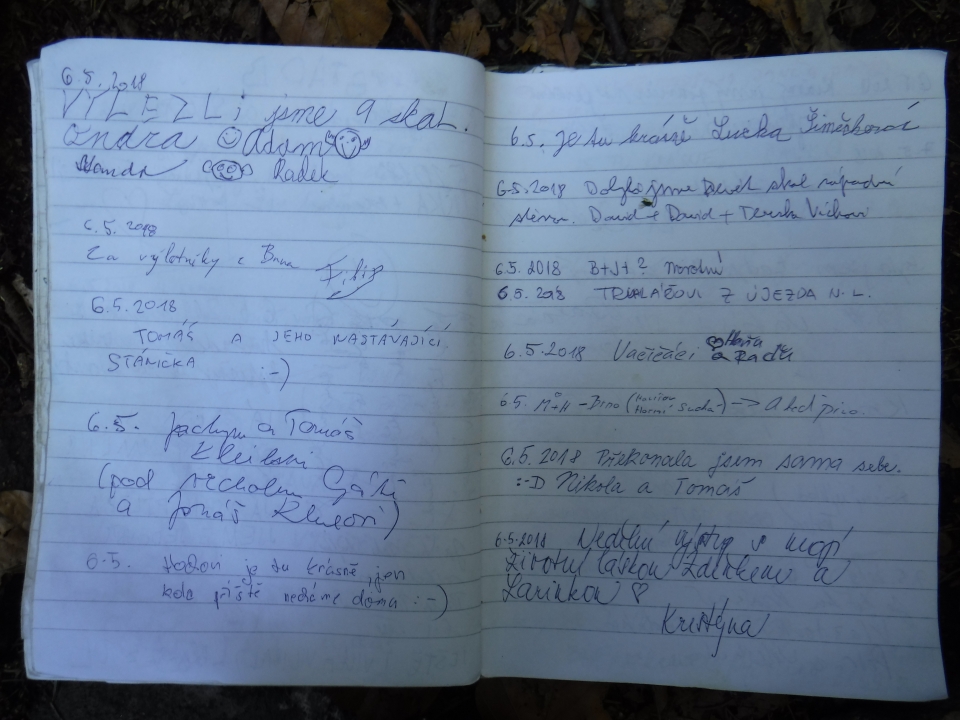 6.5.2018
VYLEZLi jsme 9 skal.
Ondra Adam
Standa Radek
6.5.2018
Za výletníky z Brna Filip
6.5.2018
TOMÁŠ A JEHO NASTÁVAJÍCÍ
STÁNIČKA :-)
6.5. Jachym a Tomáš
(pod
a Jonáš
6.5. je tu krásně jen
kolo příště necháme doma :-)
6.5. Je tu krásně Lucka Šimčíková
6.5.2018 Dobyli jsme Devět skal západní
stěnou. David + David + Terezka Víchovi
6.5.2018 B+J+?
6.5.2018 Z ÚJEZDA N. L.
6.5.2018 Hanča
a Radě
6.5. M+H - Brno (Havířov
Horní Suchá) -> A teď pivo.
6.5.2018 Překonala jsem sama sebe.
:-D Nikola a Tomáš
6.5.2018 Nedělní výstup s mojí
životní láskou Zdeňkem a
Larinkou ♡
Kristýna